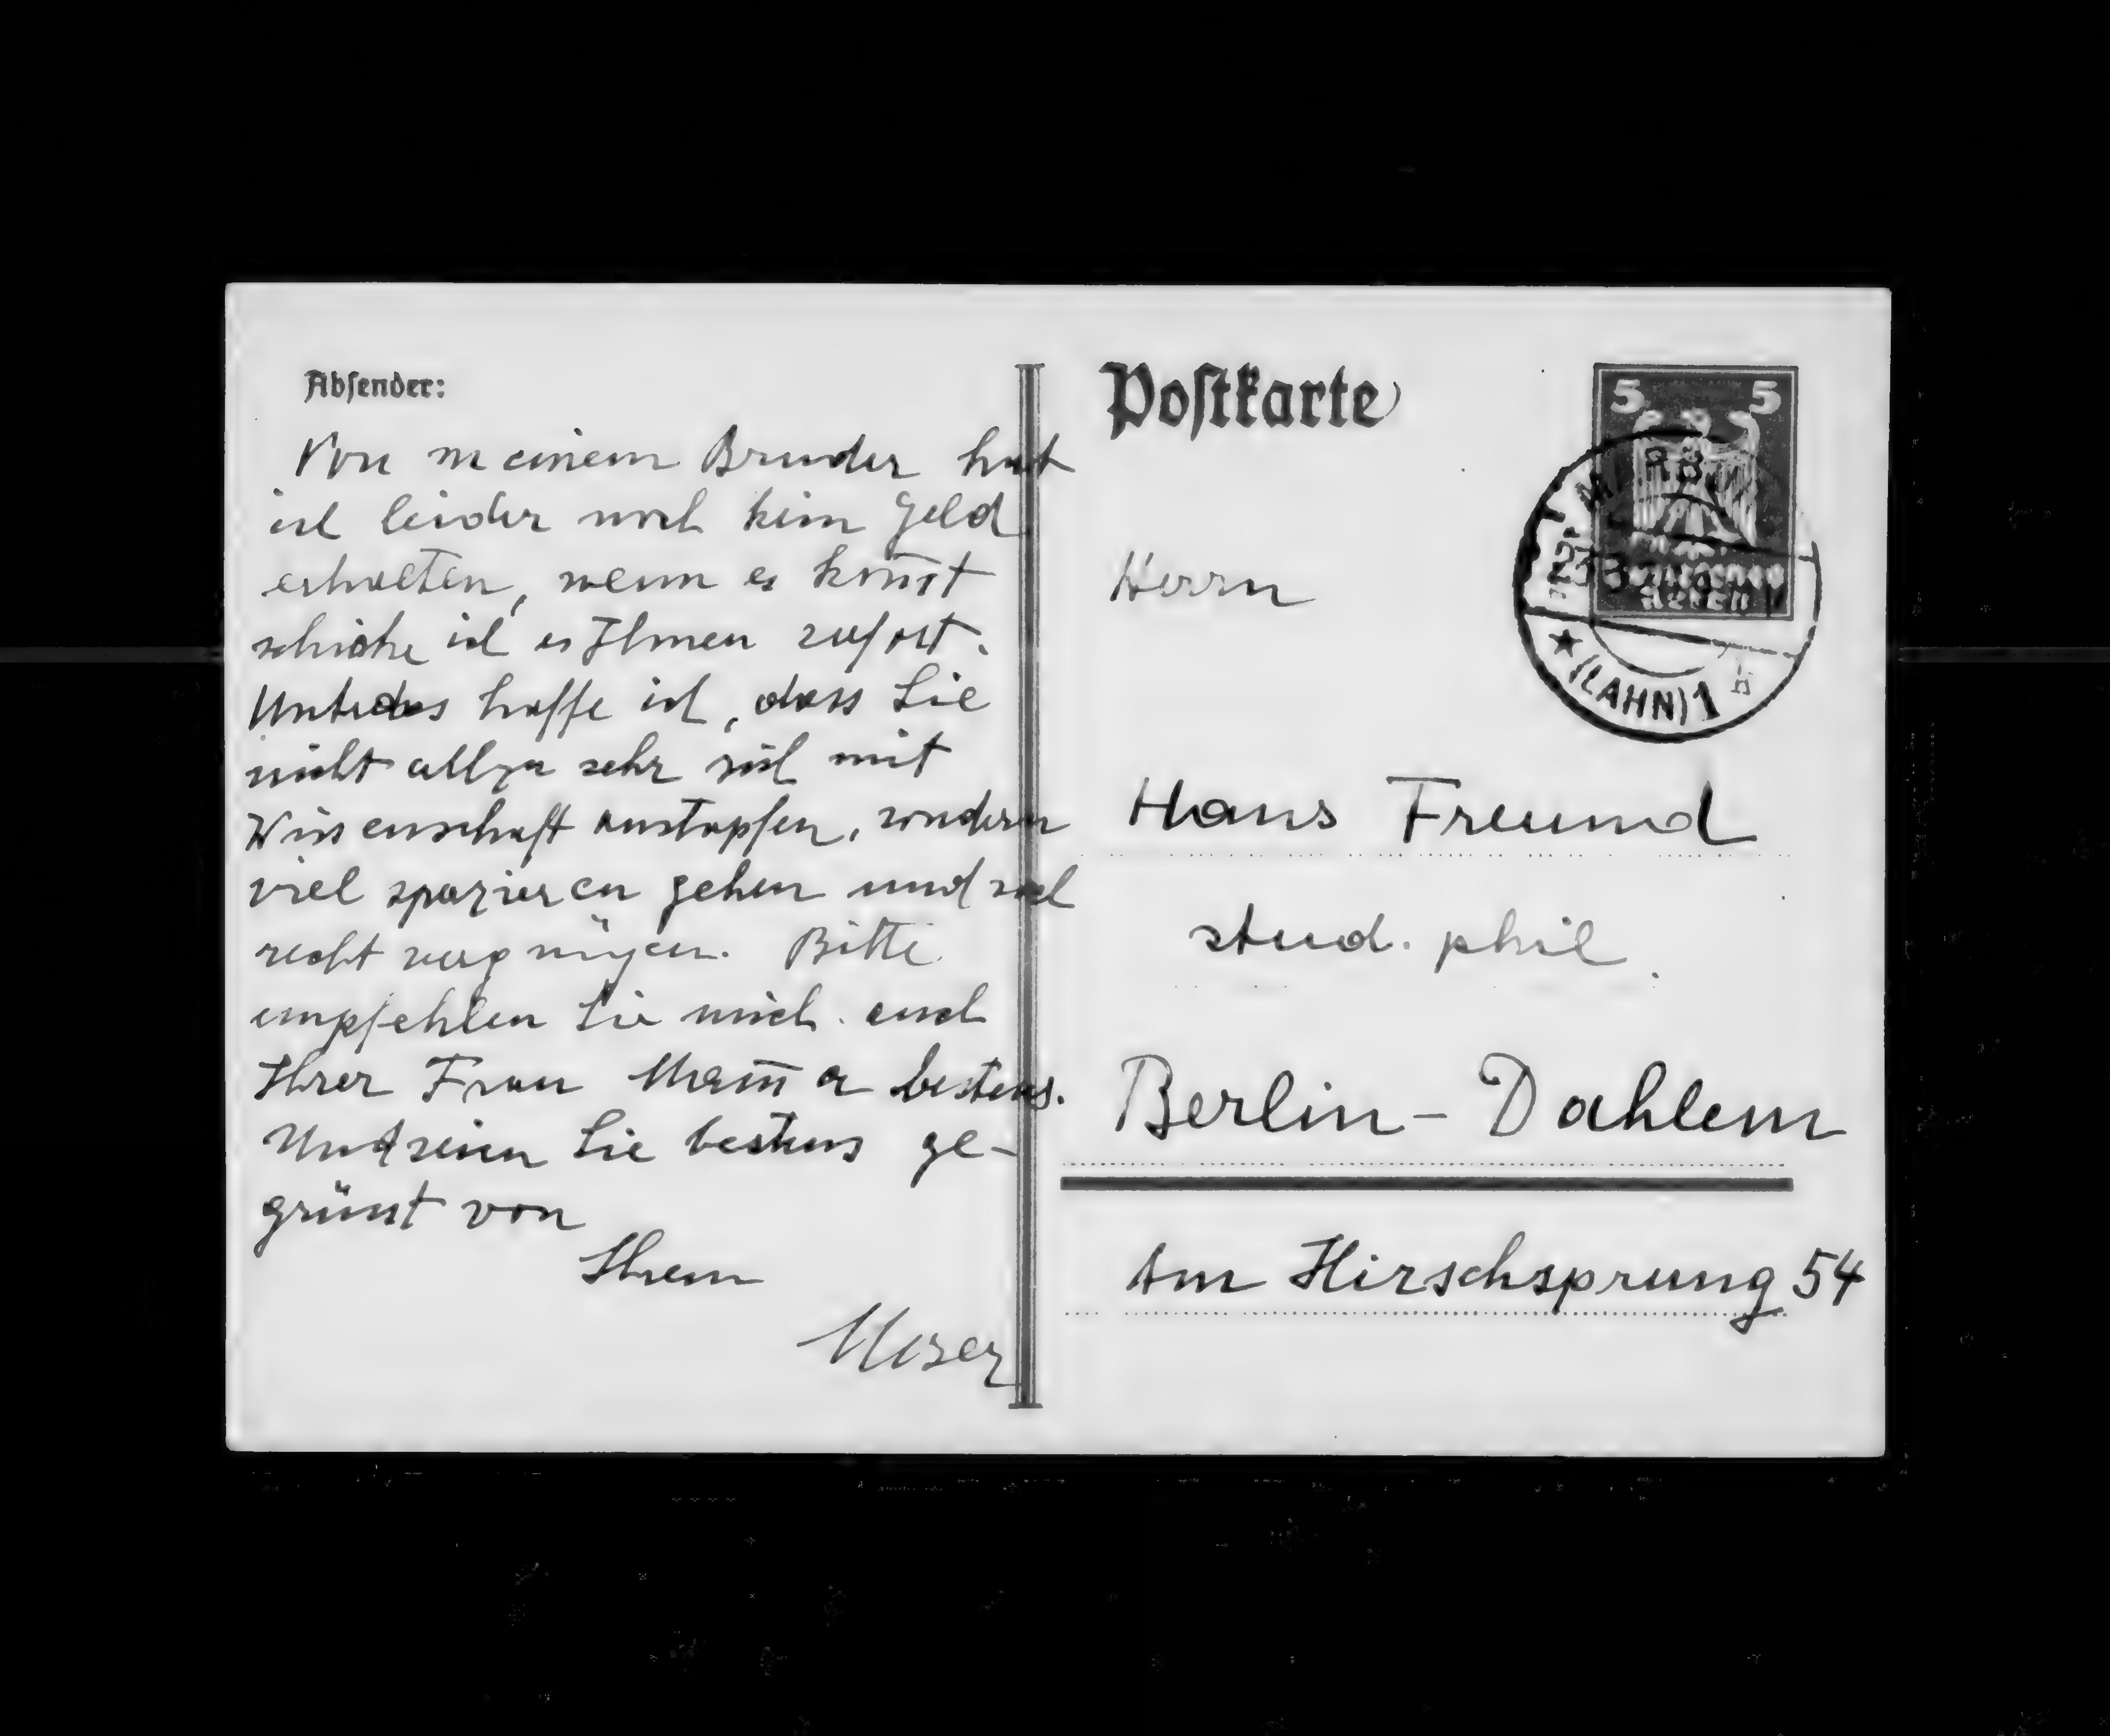 Absender:
Von meinem Bruder hat
ich leider noch kein Geld
erhalten, wenn es kom̅t
schicke ich es Ihnen sofort.
Unterdes hoffe ich, dass Sie
nicht allzu sehr sich mit
Wissenschaft anstopfen, sondern
viel spazieren gehen und sich
recht vergnügen. Bitte
empfehlen Sie mich auch
Ihrer Frau Mam̅a bestens.
Und seien Sie bestens ge-
grüsst von
Ihrem
Postkarte
5 5
(LAHN) 1
Herrn
Hans Freund
stud. phil.
Berlin-Dahlem
Am Hirschsprung 54